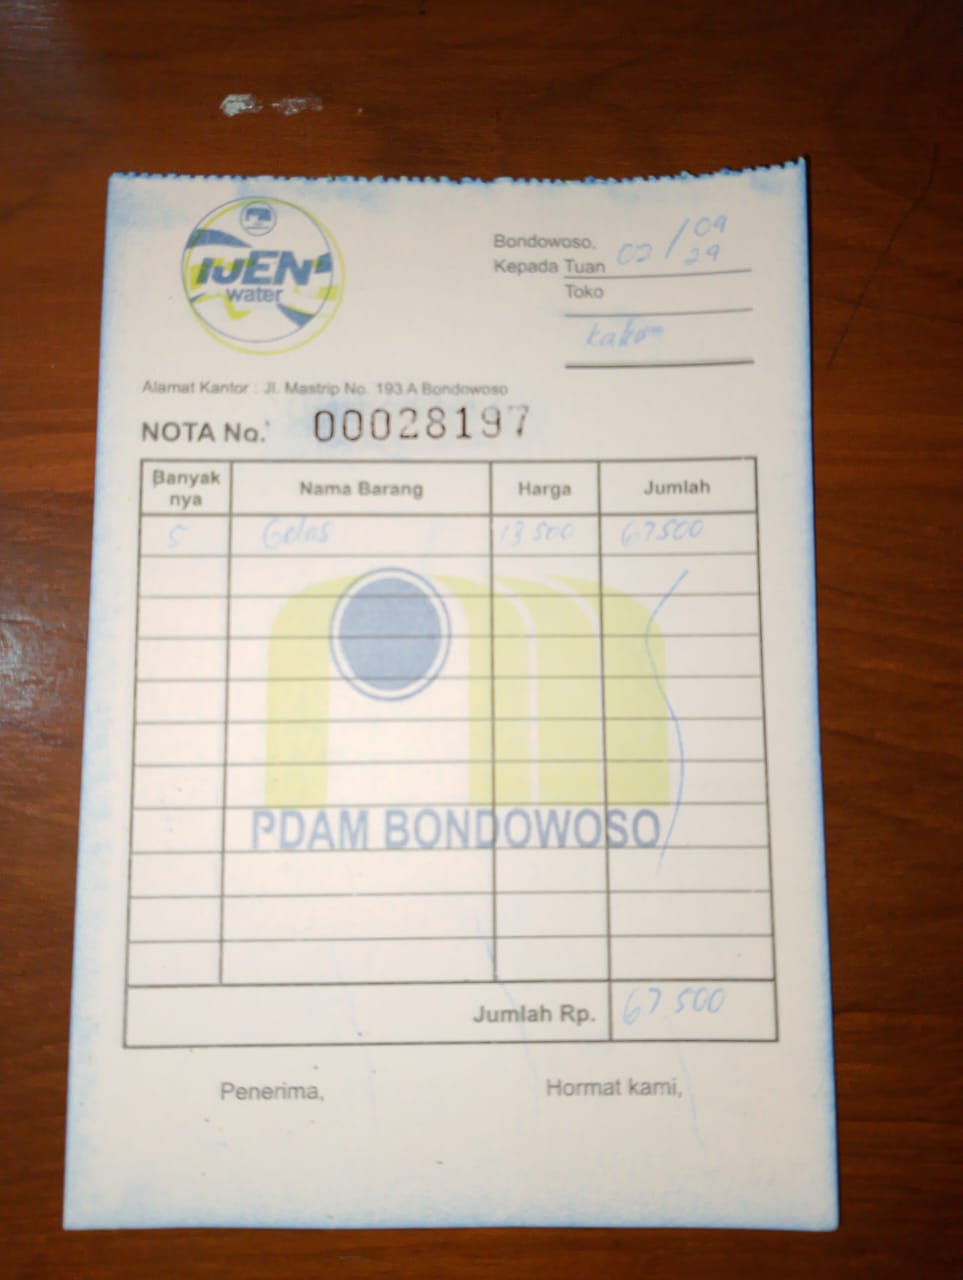 IJEN
water
Bondowoso, 02/09
Kepada Tuan
Toko
Alamat Kantor : Jl. Mastrip No. 193 A Bondowoso
NOTA No. 00028197
Banyak nya Nama Barang Harga Jumlah
5 Gelas 13.500 67.500
PDAM BONDOWOSO
Jumlah Rp. 67.500
Penerima, Hormat kami,